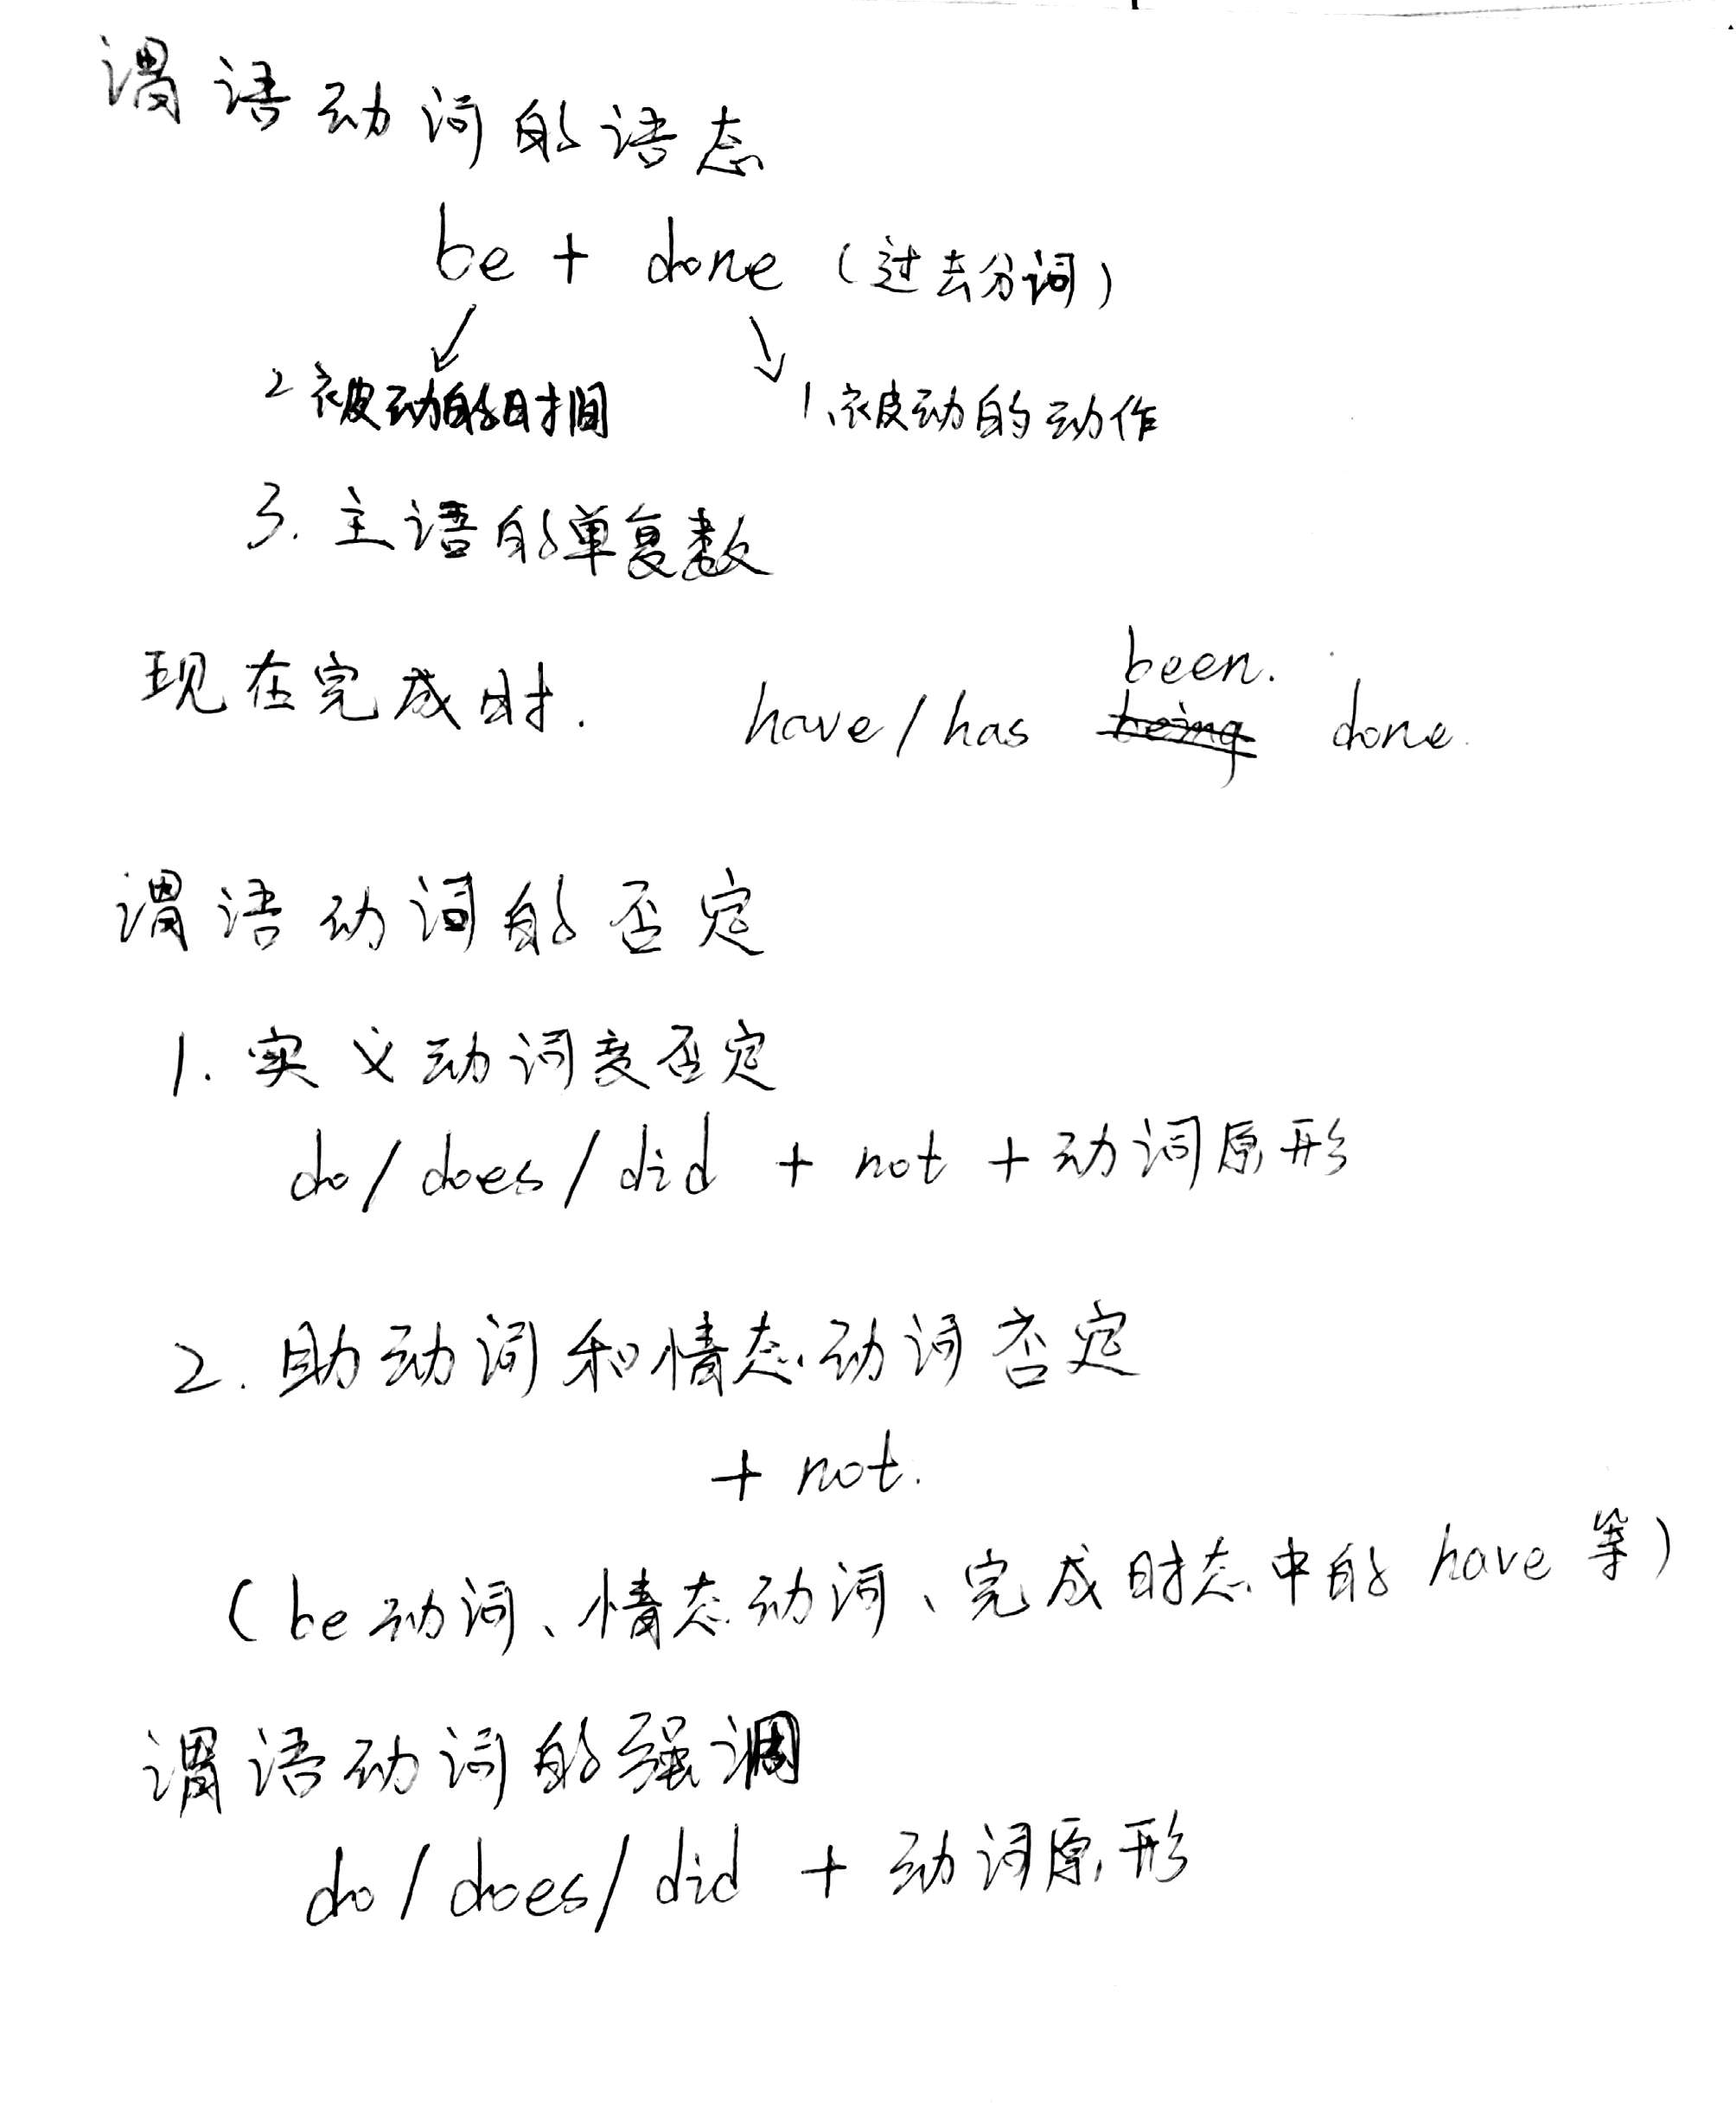 谓语动词的语态
be + done (过去分词)
2 被动的时间 1、被动的动作
3. 主语的单复数
been.
现在完成时. have/has being done.
谓语动词的否定
1. 实义动词变否定
do/does/did + not + 动词原形
2. 助动词和情态动词否定
+ not.
(be动词、情态动词、完成时态中的 have 等)
谓语动词的强调
do/does/did + 动词原形